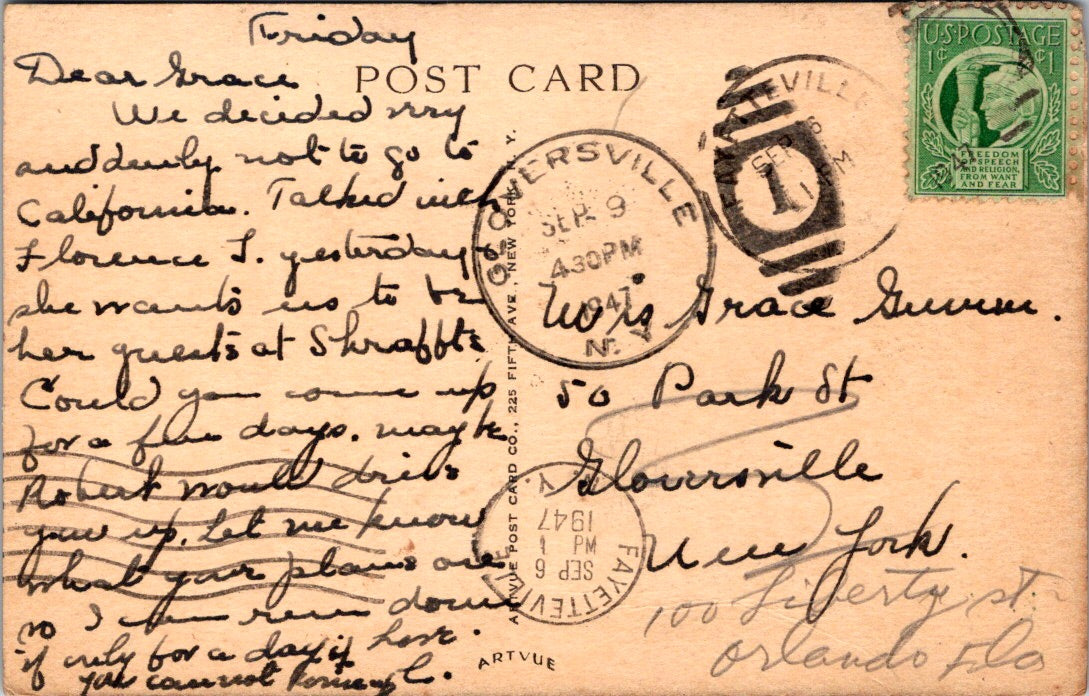 Friday
Dear Grace
We decided very
suddenly not to go to
California. Talked with
Florence T. yesterday-
she wants us to be
her guests at Shraffts.
Could you come up
for a few days. maybe
Robert would drive
you up. Let me know
what your plans are
so I can run down
if only for a day if
you cannot come up
Love.
L.
POST CARD
ARTVUE POST CARD CO., 225 FIFTH AVE., NEW YORK, N. Y.
ARTVUE
GLOVERSVILLE
SEP 9
430PM
1947
N. Y.
FAYETTEVILLE
SEP 6
1 PM
1947
N. Y.
FAYETTEVILLE
SEP 6
1 PM
1947
1
U.S. POSTAGE
1¢ ¢1
FREEDOM
OF SPEECH
AND RELIGION,
FROM WANT
AND FEAR
Grace
50 Park St
Gloversville
New York.
100 Liberty st.
Orlando Fla